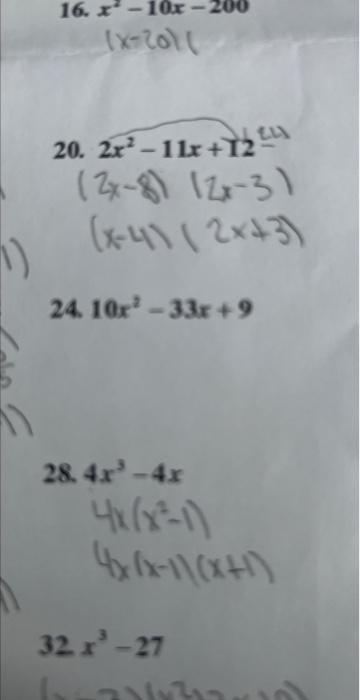 16. x² – 10x – 200
(x-20)(
20. 2x² – 11x + 12 24
(2x-8) (2x-3)
(x-4) (2x+3)
1)
24. 10x² – 33x + 9
5
1)
28. 4x³ – 4x
4x(x²-1)
4x(x-1)(x+1)
32. x³ – 27